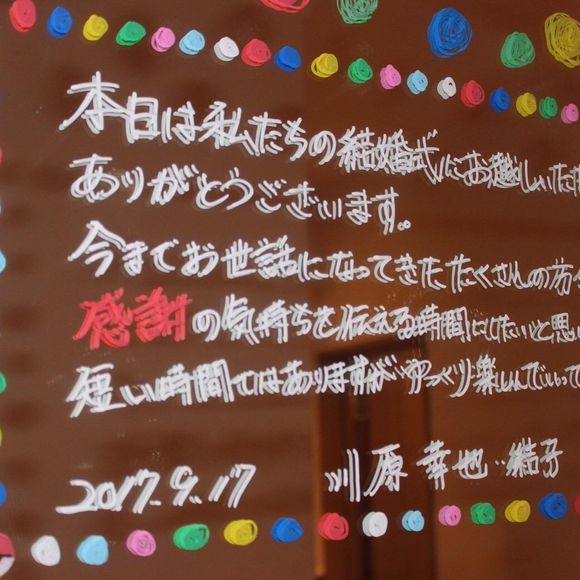 本日は私たちの結婚式にお越しいただ
ありがとうございます。
今までお世話になってきたたくさんの方々
感謝の気持ちを伝える時間にしたいと思い
短い時間ではありますがゆっくり楽しんでいって
2017.9.17 川原 幸也・結子